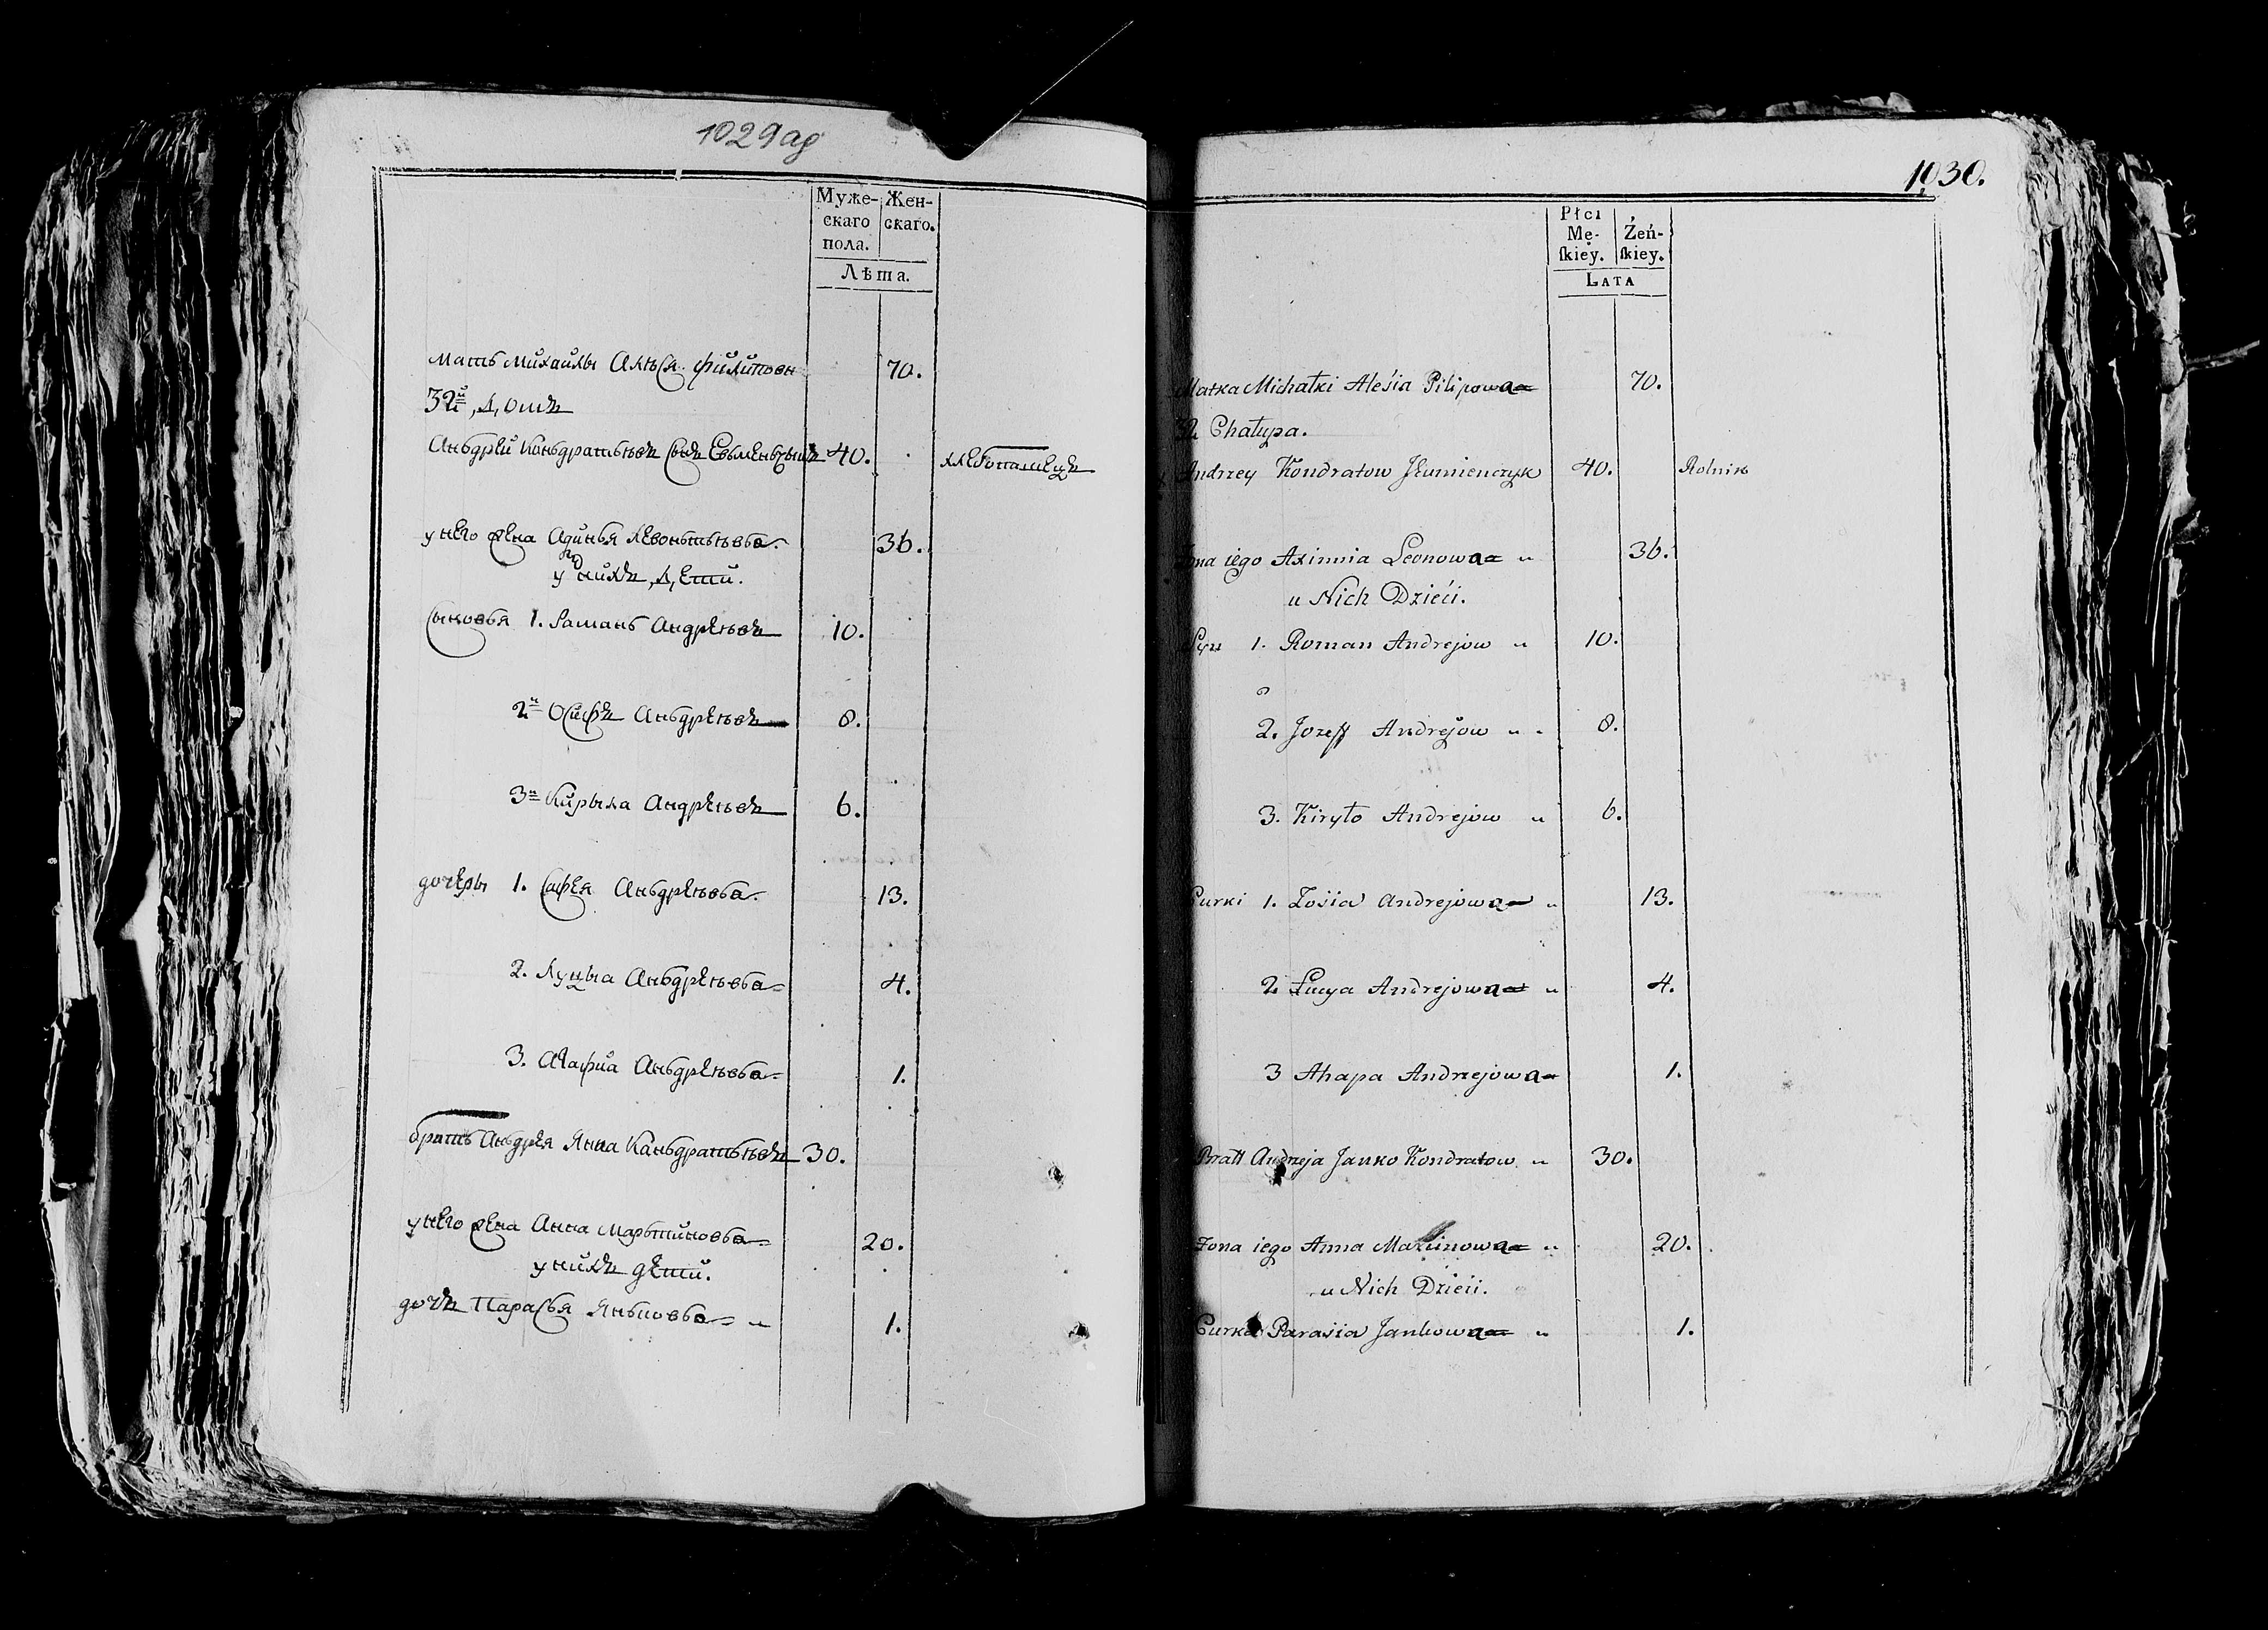 1029аg
Муже-
скаго
пола.
Жен-
скаго.
Лѣта.
Мать Михайлы Алѣся Филиповн 70.
32й Домъ
Аньдрей Каньдратьевъ сынъ 40. хлебопашецъ
у него жена Левоньтьевва 36.
у нихъ дети.
Сыновья 1. Раманъ Андреевъ 10.
2й Осифъ Аньдреевъ 8.
3й Кирыла Андреевъ 6.
дочеры 1. Сафея Аньдреевва 13.
2. Луцыа Аньдреевва 4.
3. Агафиа Аньдреевва 1.
братъ Аньдрея Янка Каньдратьевъ 30.
у него жена Анна Марьтиновва 20.
у нихъ дети.
дочъ Парасья Яньковва 1.
1030.
Płci
Mę-
ſkiey.
Żeń-
ſkiey.
LATA
Matka Michałki Aleśia Pilipowa 70.
32 Chałupa.
Andrzey Kondratow 40. Rolnik
Żona iego Axinnia Leonowa 36.
u Nich Dzieći.
Syn 1. Roman Andrejow 10.
2. Jozeff Andrejow 8.
3. Kiryło Andrejow 6.
Curki 1. Zośia Andrejowa 13.
2 Łucya Andrejowa 4.
3 Ahapa Andrzejowa 1.
Bratt Andrzeja Janko Kondratow 30.
Żona iego Anna Marcinowa 20.
u Nich Dzieći.
Curka Paraśia Jankowa 1.